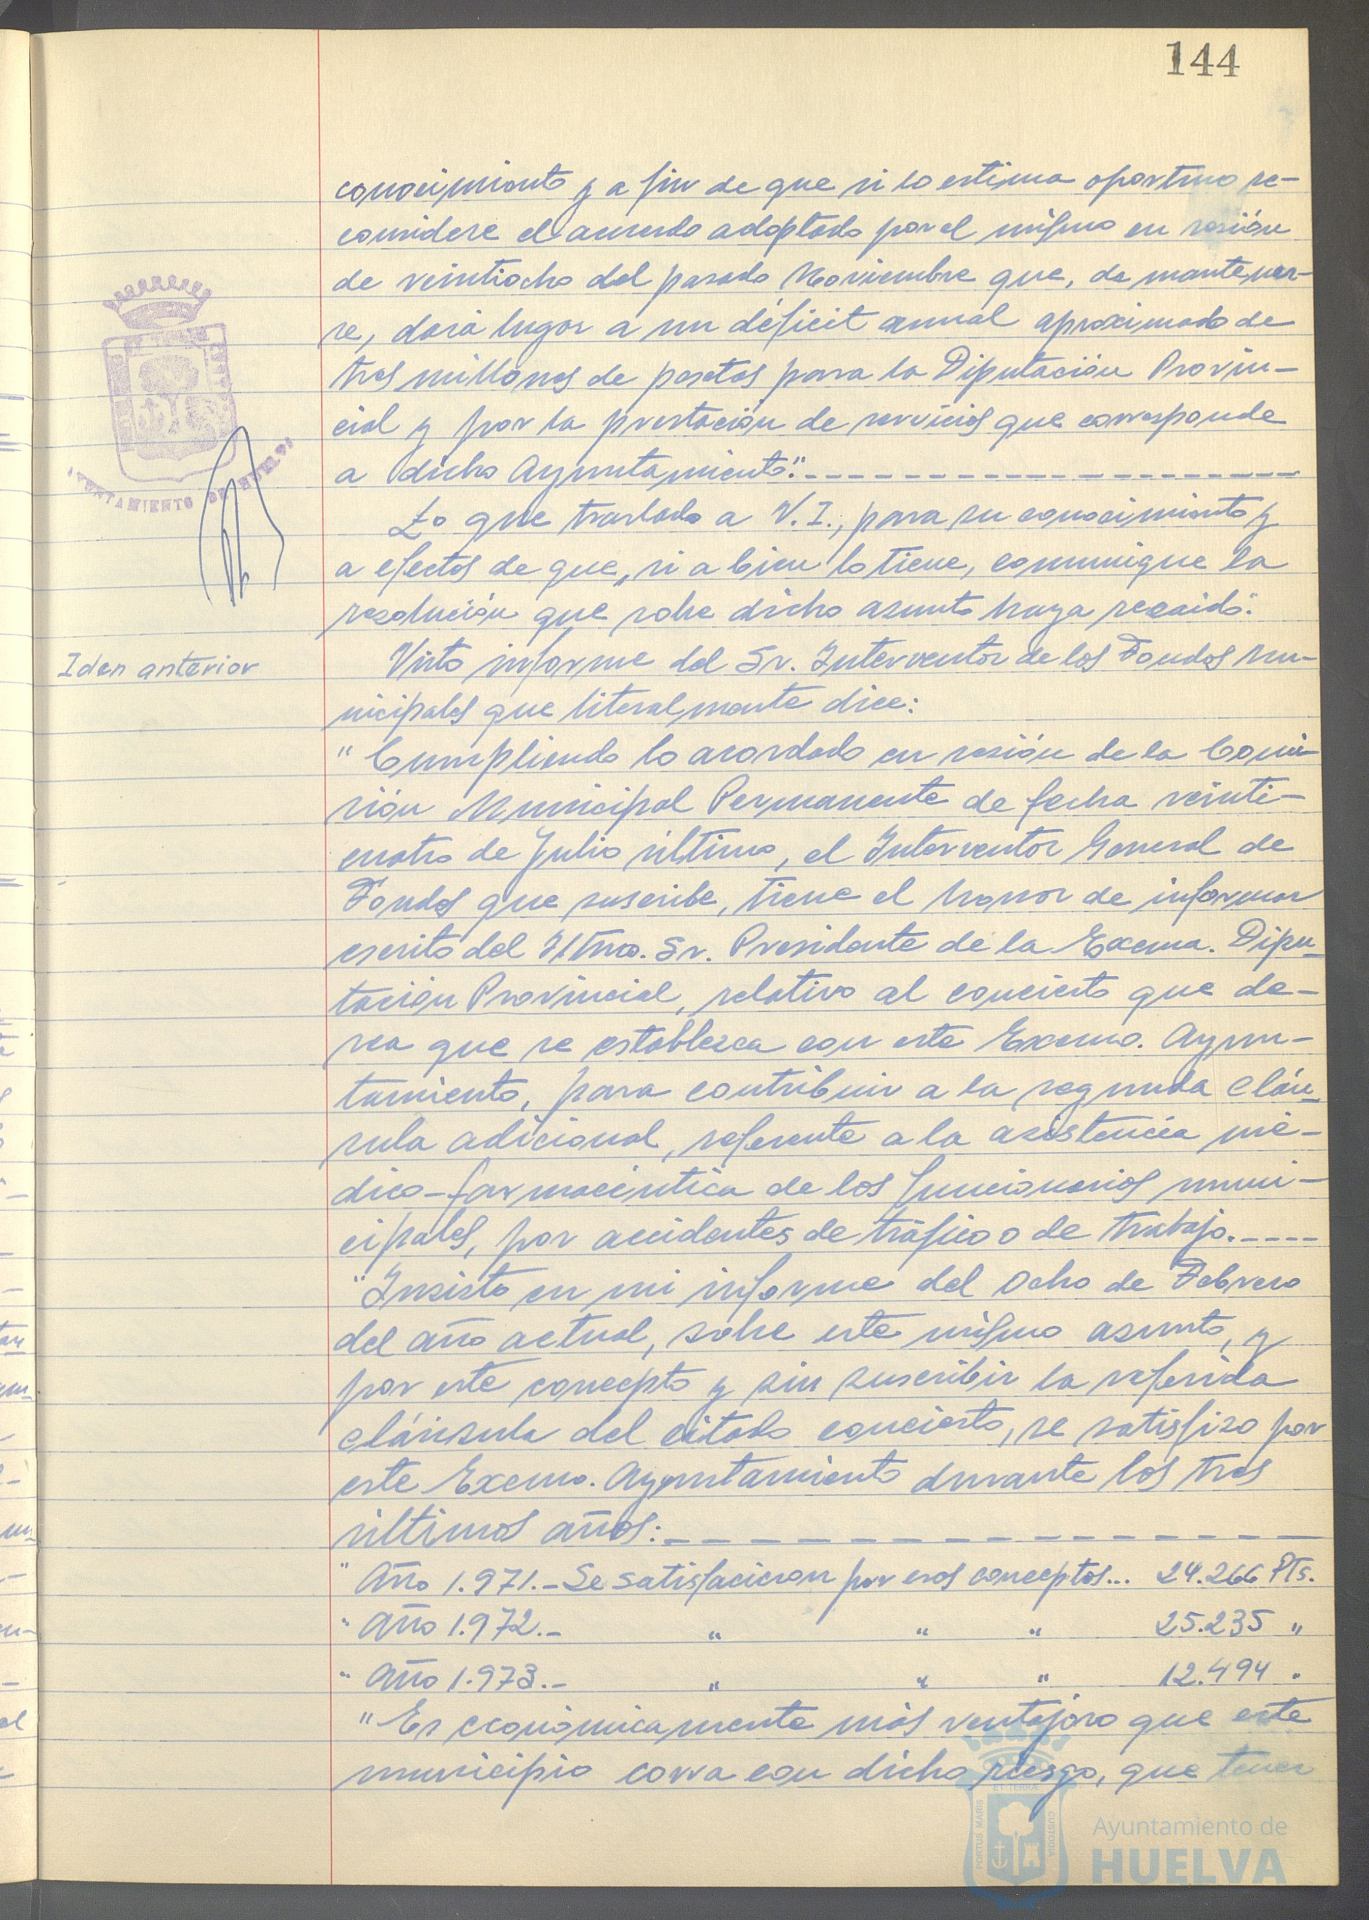 144
conocimiento y a fin de que si lo estima oportuno re-
considere el acuerdo adoptado por el mismo en sesión
de veintiocho del pasado Noviembre que, de mantener-
se, dará lugar a un déficit anual aproximado de
tres millones de pesetas para la Diputación Provin-
cial y por la prestación de servicios que corresponde
a dicho Ayuntamiento".
Lo que traslado a V.I., para su conocimiento y
a efectos de que, si a bien lo tiene, comunique la
resolución que sobre dicho asunto haya recaido".
Iden anterior
Visto informe del Sr. Interventor de los Fondos Mu-
nicipales que literalmente dice:
"Cumpliendo lo acordado en sesión de la Comi-
sión Municipal Permanente de fecha veinti-
cuatro de Julio último, el Interventor General de
Fondos que suscribe, tiene el honor de informar
escrito del Iltmo. Sr. Presidente de la Excma. Dipu-
tación Provincial, relativo al concierto que de-
sea que se establezca con este Excmo. Ayun-
tamiento, para contribuir a la segunda cláu-
sula adicional, referente a la asistencia mé-
dico-farmacéutica de los funcionarios muni-
cipales, por accidentes de tráfico o de trabajo.----
"Insisto en mi informe del ocho de Febrero
del año actual, sobre este mismo asunto, y
por este concepto y sin suscribir la referida
cláusula del citado concierto, se satisfizo por
este Excmo. Ayuntamiento durante los tres
últimos años:
" Año 1.971.- Se satisfacieron por esos conceptos... 24.266 Pts.
" Año 1.972.- " " " 25.235 "
" Año 1.973.- " " " 12.494 "
"Es económicamente más ventajoso que este
municipio corra con dicho riesgo, que tener
AYUNTAMIENTO DE HUELVA
PORTUS MARIS ET TERRAE CUSTODIA
Ayuntamiento de
HUELVA